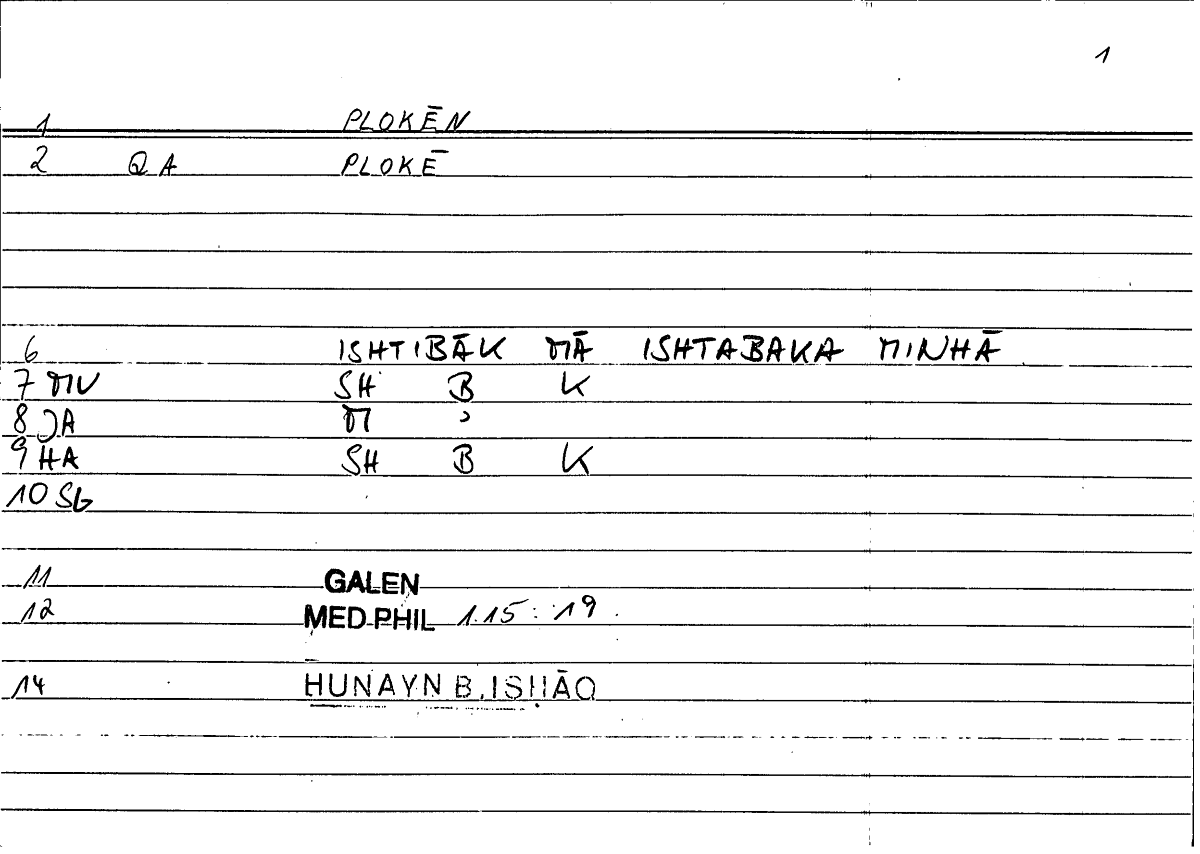 1
1 PLOKĒN
2 QA PLOKĒ
6 ISHTIBĀK MĀ ISHTABAKA MINHĀ
7 MV SH B K
8 JA M ʾ
9 HA SH B K
10 SG
11 GALEN
12 MED.PHIL 1.15 : 19.
14 HUNAYN B.ISHĀQ